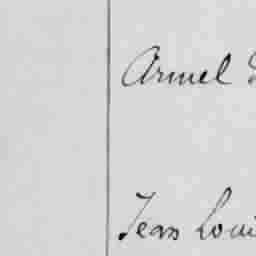 Armel
Jean Loui